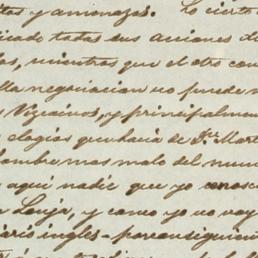 tos y amenazas. Lo cierto
icado todas sus acciones de
los, mientras que el otro con
lla negociacion no puede n
Vizcainos, y principalmen
elogios que hacia de Sr. Mart
ombre mas malo del mun
aqui nadie que yo conosc
Lonja, y como yo no voy
iario ingles - por consiguien